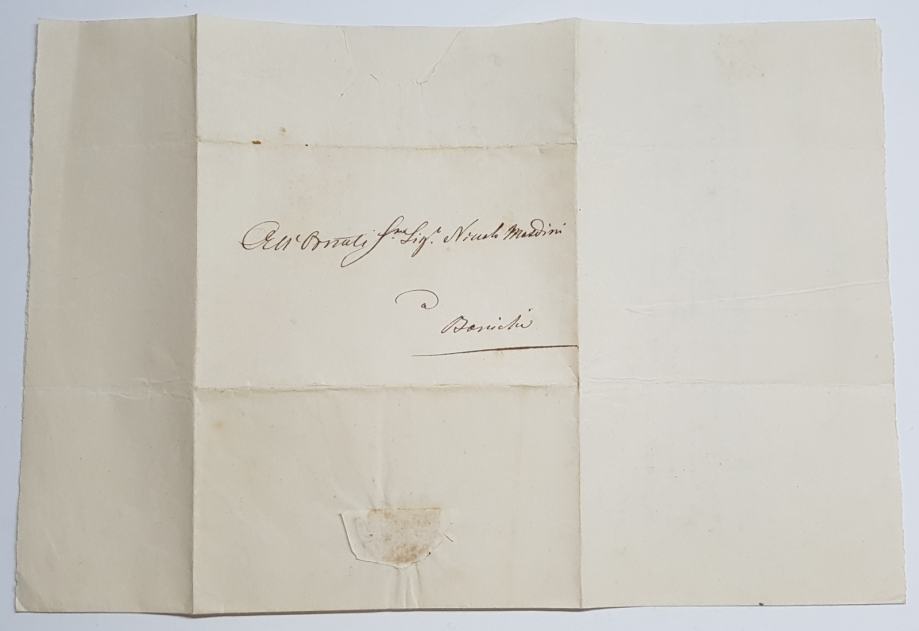 All' Ornati. Sme. Sigr. Nicolo Mardini
a
Bonichi